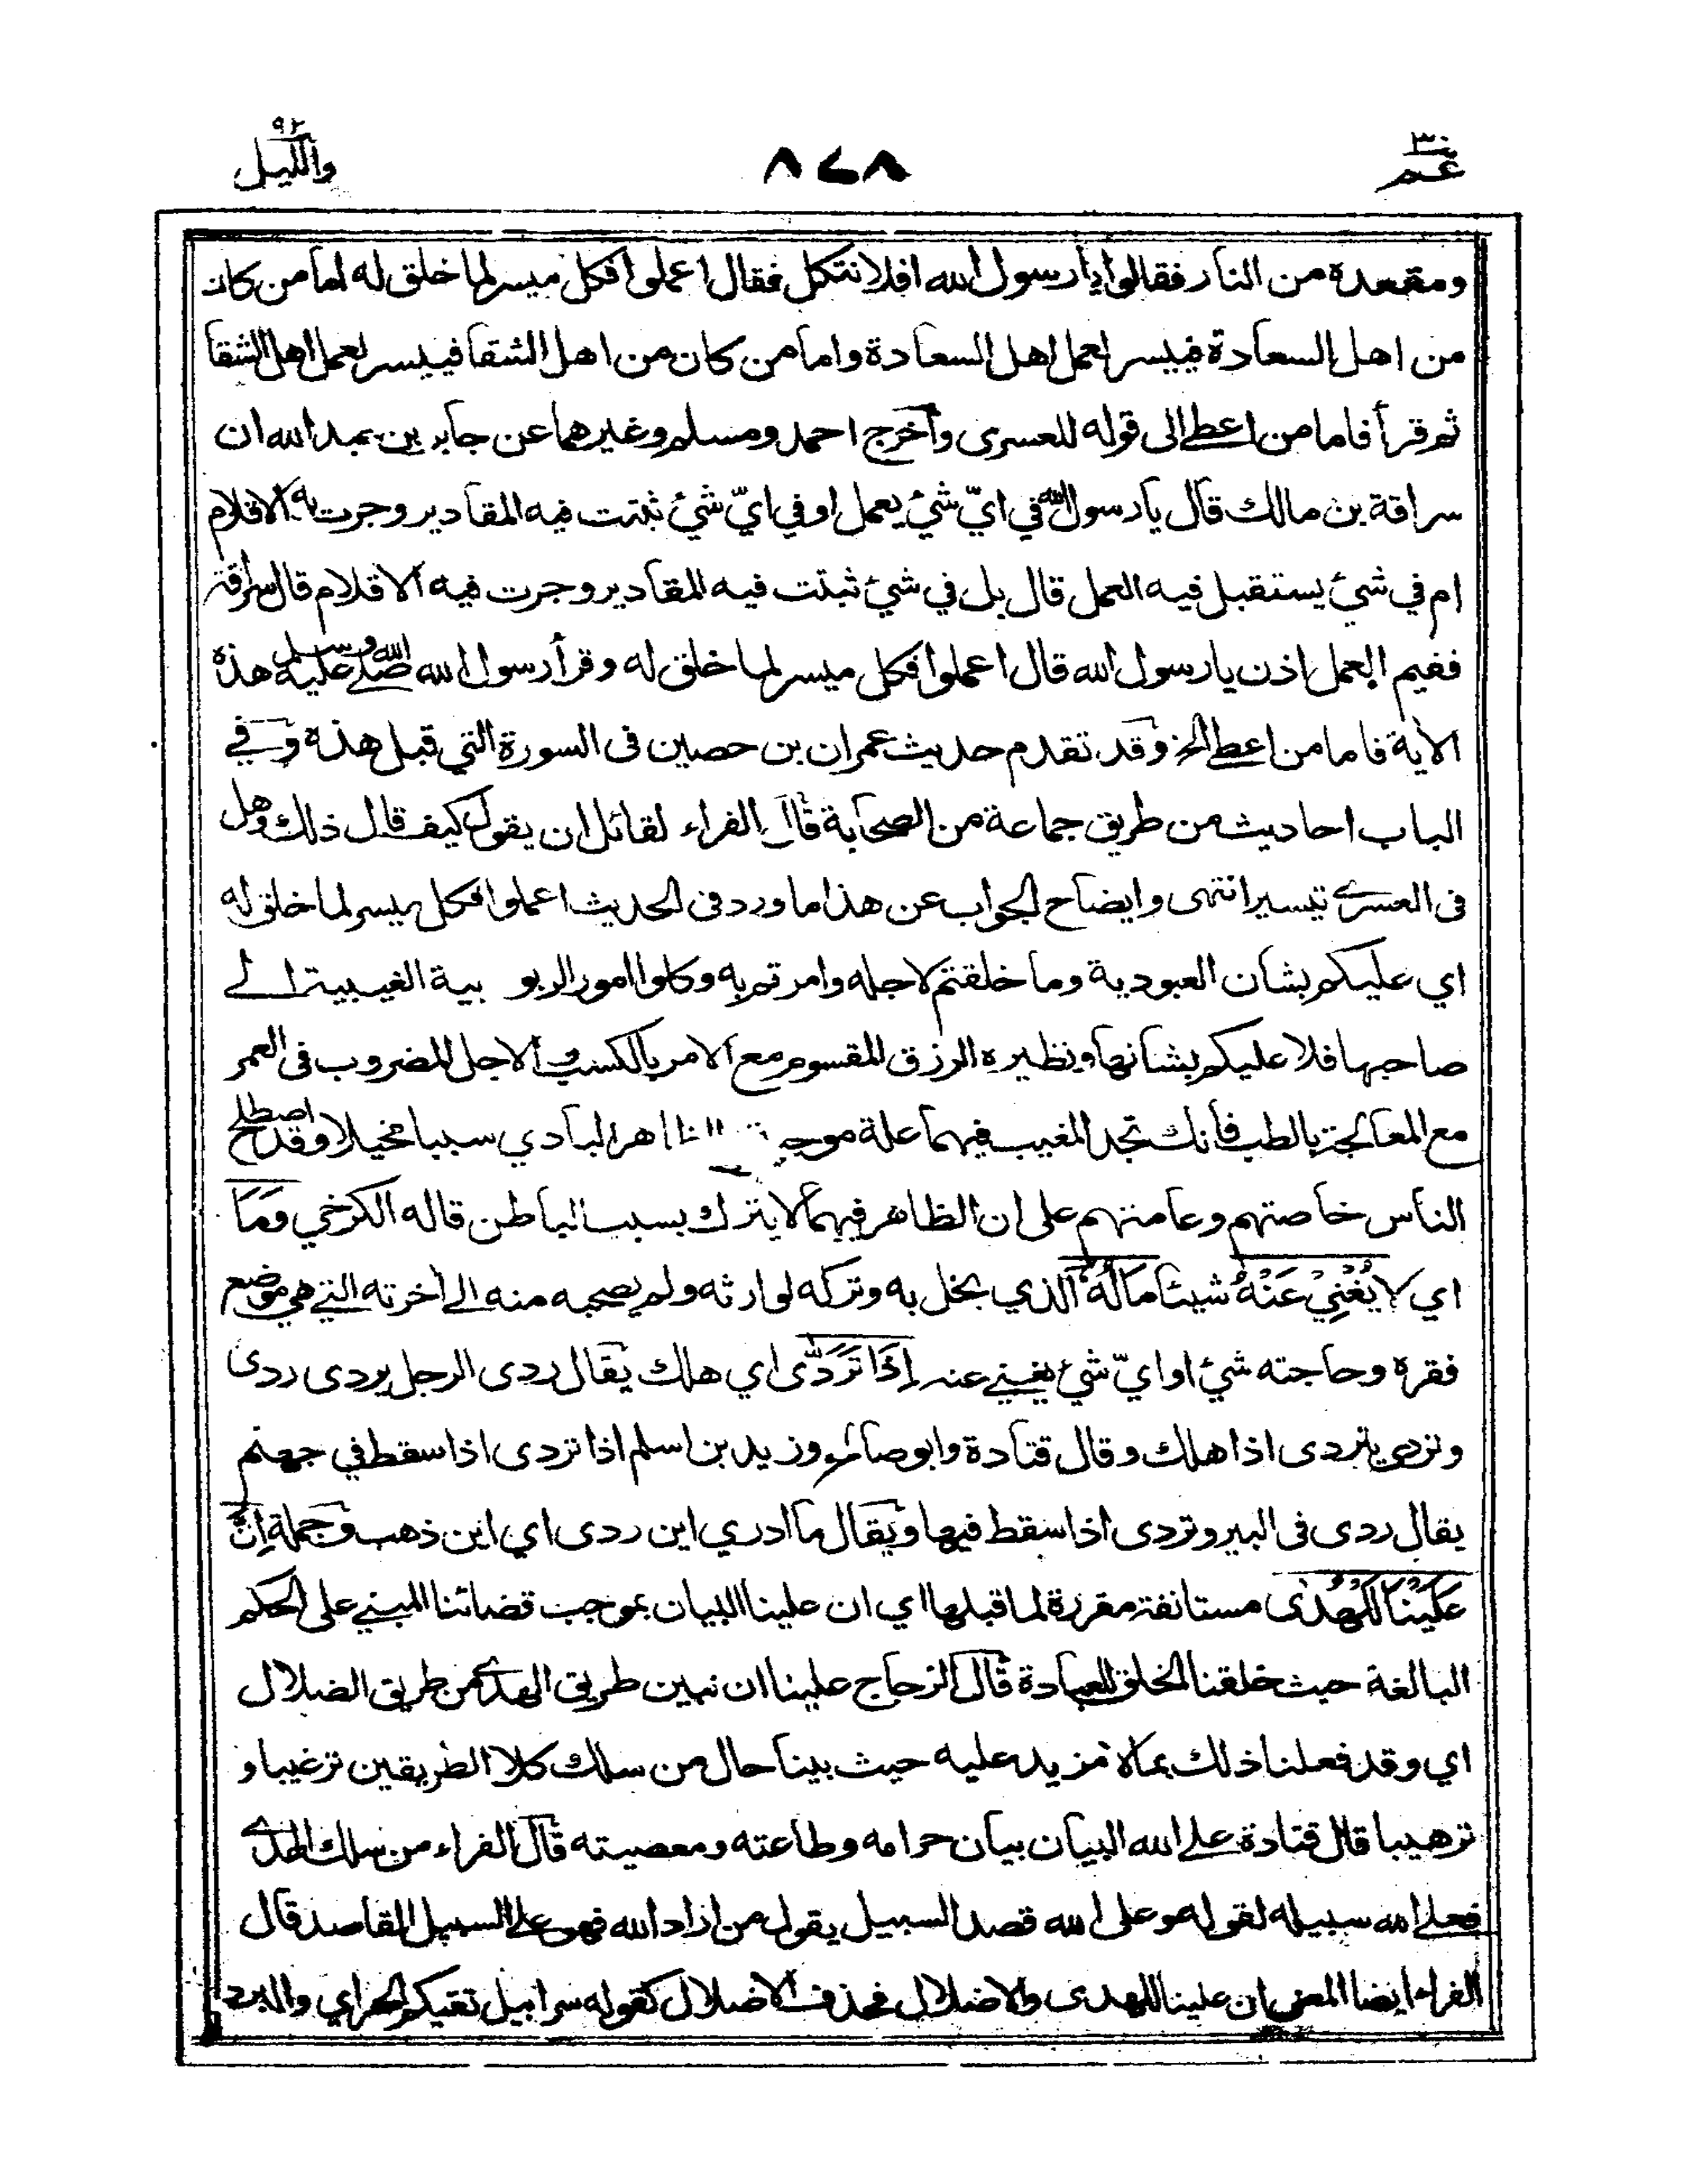 عم ٣٠
٨٧٨
والليل ٩٢
ومقعده من النار فقالوا يا رسول الله افلا نتكل فقال اعملوا فكل ميسر لما خلق له اما من كان
من اهل السعادة فييسر لعمل اهل السعادة واما من كان من اهل الشقا فييسر لعمل اهل الشقا
ثم قرأ فاما من اعطى الى قوله للعسرى وأخرج احمد ومسلم وغيرهما عن جابر بن عبد الله ان
سراقة بن مالك قال يا رسول الله في ايّ شئ يعمل او في ايّ شئ ثبتت فيه المقادير وجرت به الاقلام
ام في شئ يستقبل فيه العمل قال بل في شئ ثبتت فيه المقادير وجرت فيه الاقلام قال سراقة
ففيم العمل اذن يا رسول الله قال اعملوا فكل ميسر لما خلق له وقرأ رسول الله صلى الله عليه وسلم هذه
الاية فاما من اعطى الخ وقد تقدم حديث عمران بن حصين فى السورة التي قبل هذه وفي
الباب احاديث من طريق جماعة من الصحابة قال الفراء لقائل ان يقول كيف قال ذلك وهل
فى العسرى تيسير انتهى وايضاح الجواب عن هذا ما ورد فى الحديث اعملوا فكل ميسر لما خلق له
اي عليكم بشان العبودية وما خلقتم لاجله وامرتم به وكلوا امور الربو بية الغيبية الى
صاحبها فلا عليكم بشانها ونظيره الرزق المقسوم مع الامر بالكسب والاجل المضروب فى العمر
مع المعالجة بالطب فأنك تجد المغيب فيهما علة موجبة الظاهر البادي سببا مخيلا وقد اصطلح
الناس خاصتهم وعامتهم على ان الظاهر فيهما لا يترك بسبب الباطن قاله الكرخي وَمَا
اي لا يُغْنِيْ عَنْهُ شيئا مَالُهٗ الذي بخل به وتركه لوارثه ولم يصحبه منه الى أخرته التي هي موضع
فقره وحاجته شئ او ايّ شئ يغني عنه إِذَا تَرَدّٰى اي هلك يقال ردى الرجل يردى ردى
وتردى يتردى اذا هلك وقال قتادة وابو صالح وزيد بن اسلم اذا تردى اذا سقط في جهنم
يقال ردى فى البير وتردى اذا سقط فيها ويقال ما ادري اين ردى اي اين ذهب وجملة إِنَّ
عَلَيْنَا لَلْهُدٰى مستانفة مقررة لما قبلها اي ان علينا البيان بموجب قضائنا المبني على الحكم
البالغة حيث خلقنا الخلق للعبادة قال الزجاج علينا ان نبين طريق الهدى من طريق الضلال
اي وقد فعلنا ذلك بما لا مزيد عليه حيث بينا حال من سلك كلا الطريقين ترغيبا و
ترهيبا قال قتادة على الله البيان بيان حرامه وطاعته ومعصيته قال الفراء من سلك الهدى
فعلى الله سبيله لقوله وعلى الله قصد السبيل يقول من اراد الله فهو على السبيل القاصد قال
الفراء ايضا المعنى ان علينا للهدى والاضلال فحذف الاضلال كقوله سرابيل تقيكم الحر اي والبرد